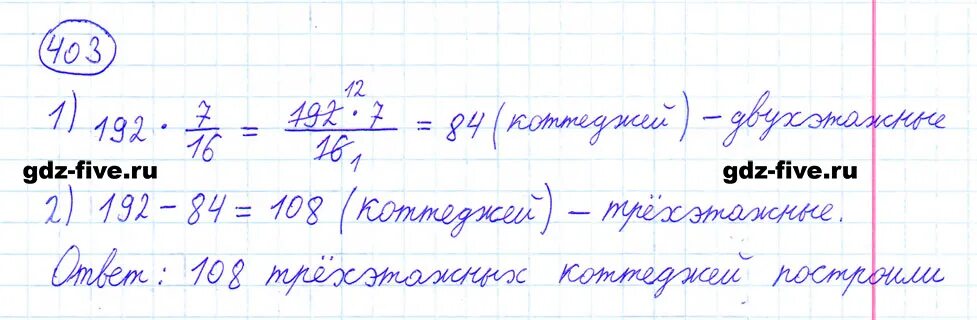 403
1) 192 · 7/16 = 192 · 7/16 = 84 (коттеджей) – двухэтажные
12
1
gdz-five.ru gdz-five.ru
2) 192 – 84 = 108 (коттеджей) – трёхэтажные.
Ответ: 108 трёхэтажных коттеджей построили